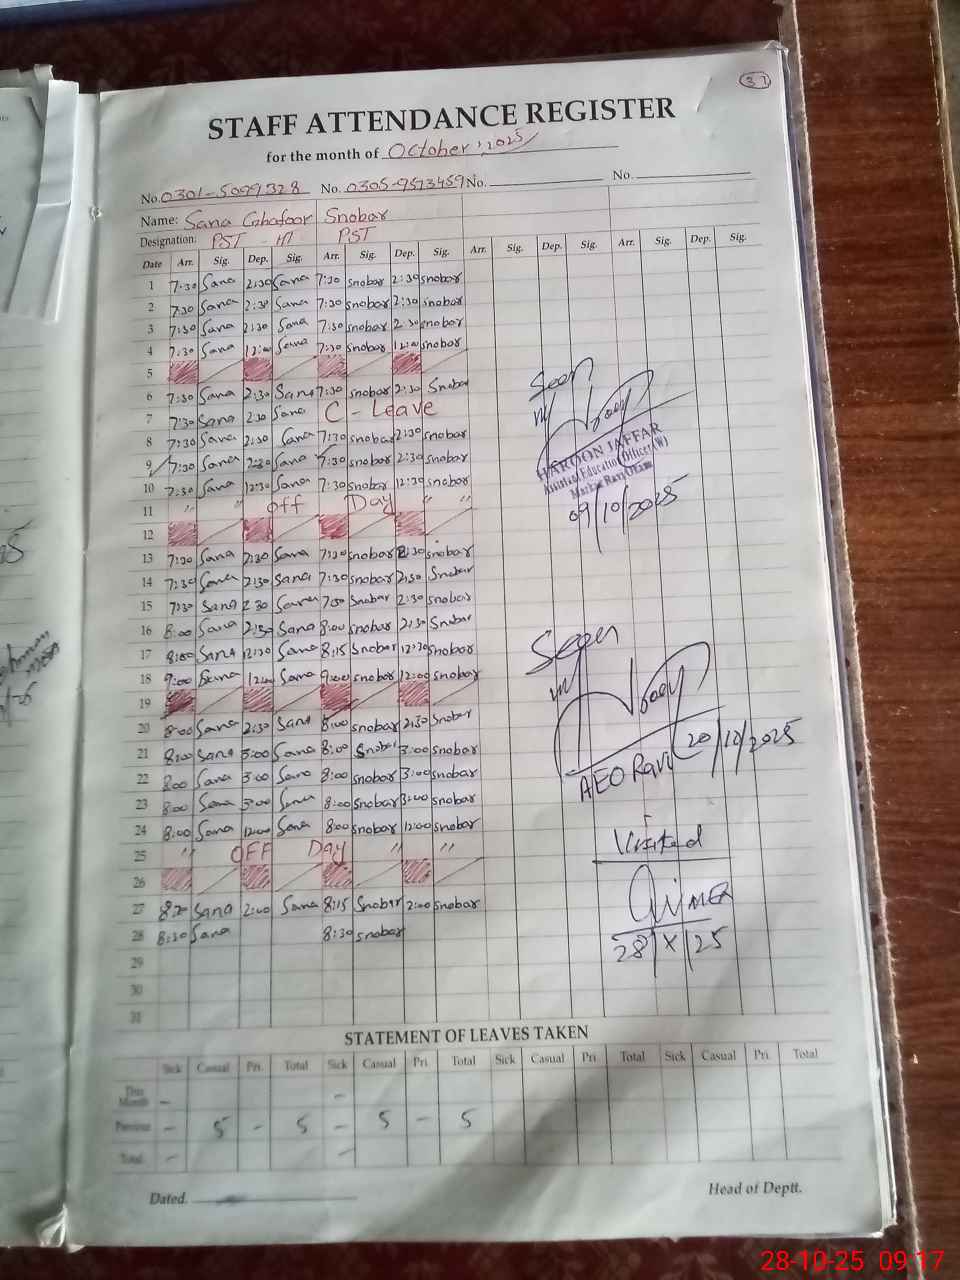 37
STAFF ATTENDANCE REGISTER
for the month of October, 2025
No. 0301-5099328 No. 0305-9573459 No. No.
Name: Sana Ghafoor Snobar
Designation: PST PST
Date Arr. Sig. Dep. Sig. Arr. Sig. Dep. Sig. Arr. Sig. Dep. Sig. Arr. Sig. Dep. Sig.
1 7:30 Sana 2:30 Sana 7:30 snobar 2:30 snobar
2 7:30 Sana 2:30 Sana 7:30 snobar 2:30 snobar
3 7:30 Sana 2:30 Sana 7:30 snobar 2:30 snobar
4 7:30 Sana 12:00 Sana 7:30 snobar 12:00 snobar
5
6 7:30 Sana 2:30 Sana 7:30 snobar 2:30 Snobar
7 7:30 Sana 2:30 Sana C - Leave
8 7:30 Sana 2:30 Sana 7:30 snobar 2:30 snobar
9 7:30 Sana 2:30 Sana 7:30 snobar 2:30 snobar
10 7:30 Sana 12:30 Sana 7:30 snobar 12:30 snobar
11 " " off Day " "
12
13 7:30 Sana 2:30 Sana 7:30 snobar 2:30 snobar
14 7:30 Sana 2:30 Sana 7:30 snobar 2:30 Snobar
15 7:30 Sana 2:30 Sana 7:30 Snobar 2:30 snobar
16 8:00 Sana 2:30 Sana 8:00 snobar 2:30 Snobar
17 8:00 Sana 12:30 Sana 8:15 Snobar 12:30 snobar
18 9:00 Sana 12:00 Sana 9:00 snobar 12:00 snobar
19
20 8:00 Sana 2:30 Sana 8:00 snobar 2:30 snobar
21 8:00 Sana 3:00 Sana 8:00 Snobar 3:00 snobar
22 8:00 Sana 3:00 Sana 8:00 snobar 3:00 snobar
23 8:00 Sana 3:00 Sana 8:00 snobar 3:00 snobar
24 8:00 Sana 12:00 Sana 8:00 snobar 12:00 snobar
25 " OFF Day " "
26
27 Sana 2:00 Sana 8:15 Snobar 2:00 snobar
28 8:30 Sana 8:30 snobar
29
30
31
Seen
HAROON JAFFAR
Assistant Education Officer (W)
Markaz Ravi
09/10/2025
Seen
AEO Ravi 20/10/2025
Visited
MEA
28/X/25
STATEMENT OF LEAVES TAKEN
Sick Casual Pri. Total Sick Casual Pri. Total Sick Casual Pri. Total Sick Casual Pri. Total
This Month - -
Previous - 5 - 5 - 5 - 5
Total - -
Dated. Head of Deptt.
28-10-25 09:17